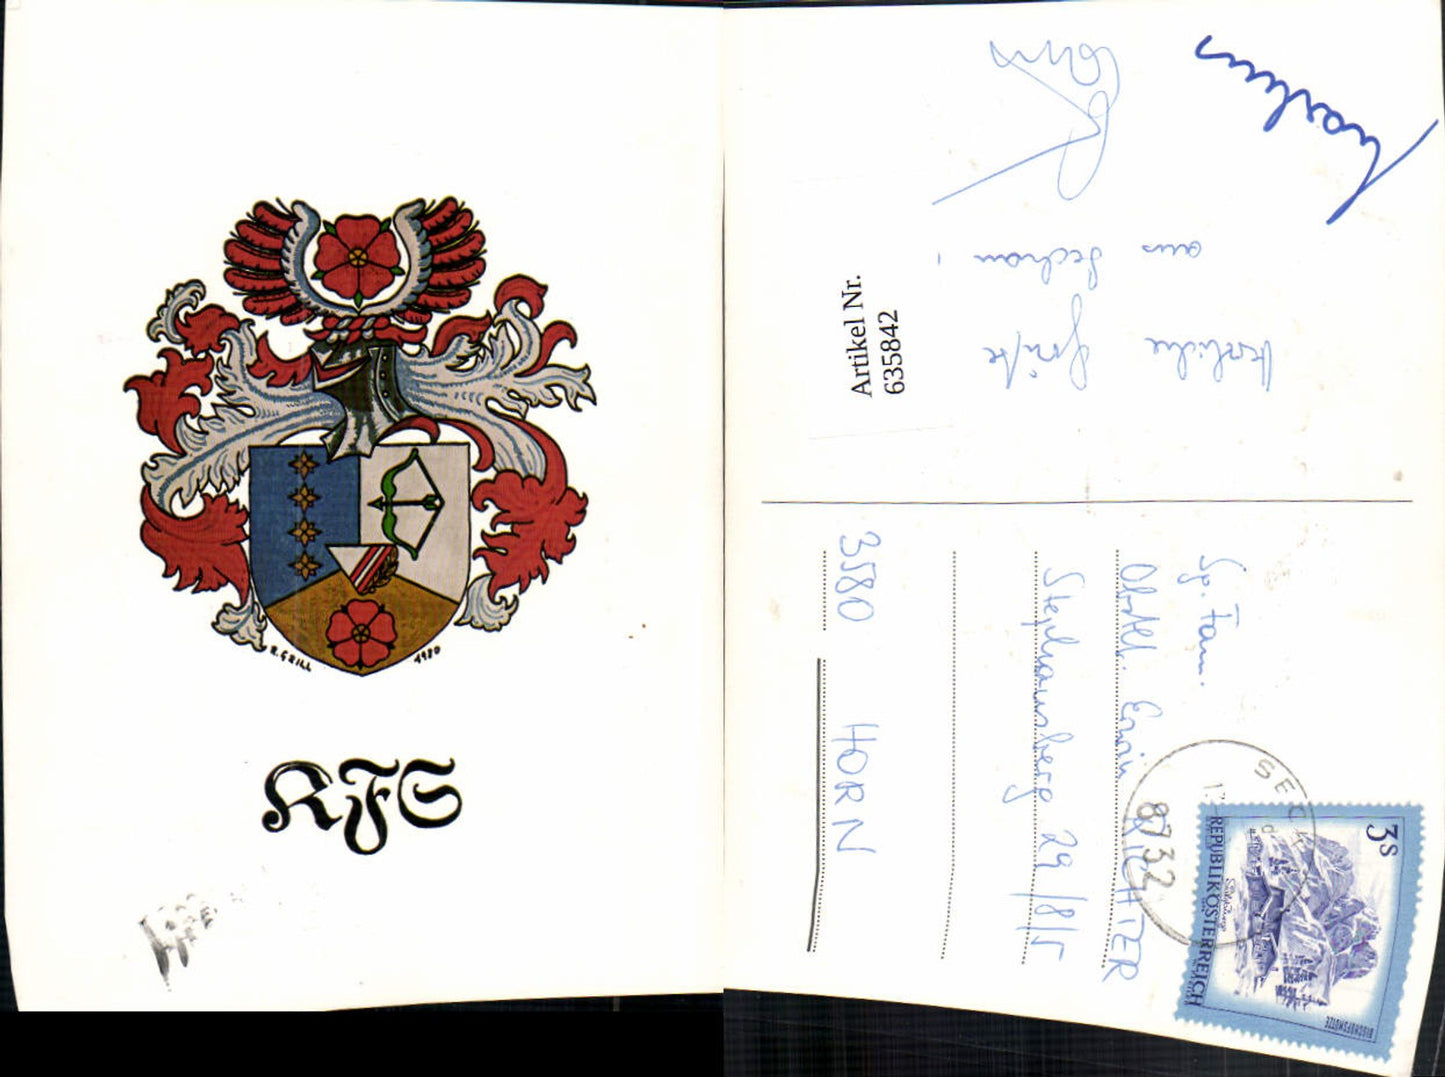 R. GRILL
1980
KFS
Herzliche
Grüße
aus Seckau!
Markus
Artikel Nr.
635842
Sg. Fam.
Obstlt. Erwin RICHTER
Stephansberg 29/8/5
3580 HORN
SEC
8732
3S
REPUBLIK ÖSTERREICH
BISCHOFSMÜTZE